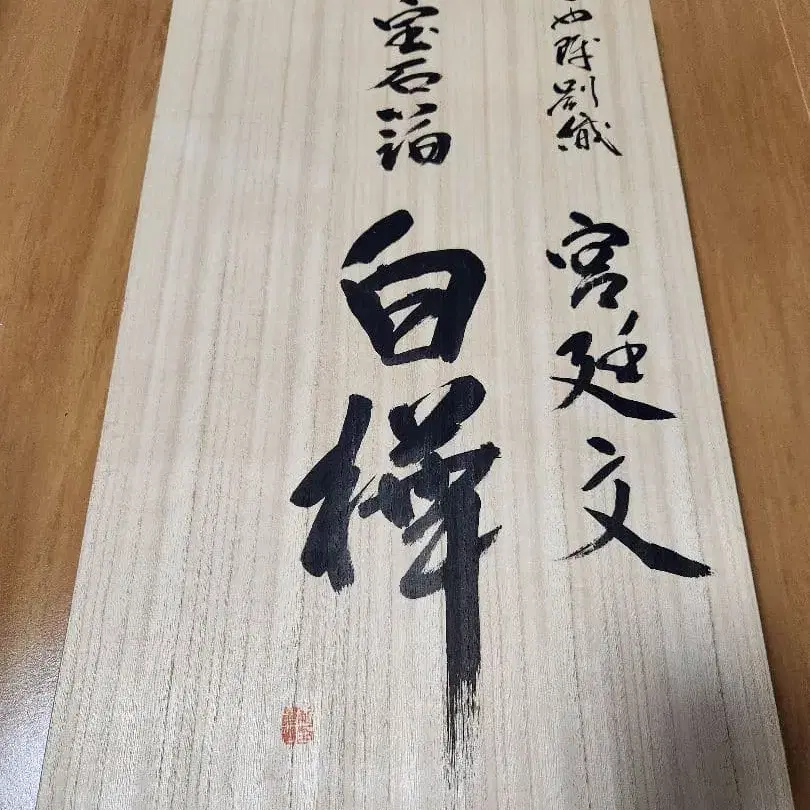 西陣別織 宮廷文
宝石箔
白樺